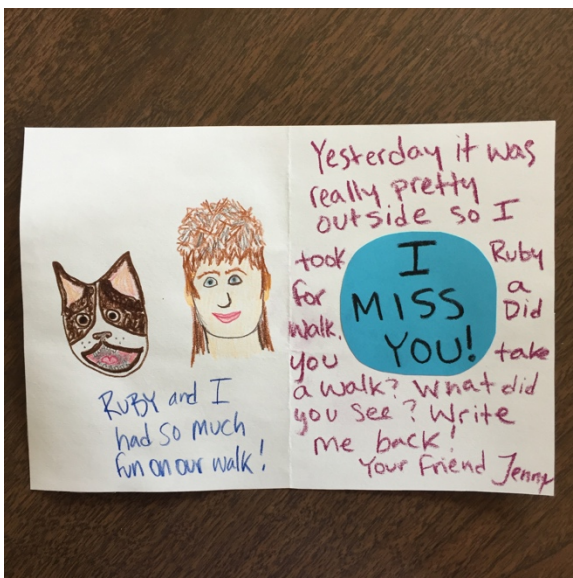 RUBY and I
had so much
fun on our walk!
Yesterday it was
really pretty
outside so I
took Ruby
for a
walk. Did
you take
a walk? What did
you see? Write
me back!
Your Friend Jenny
I
MISS
YOU!